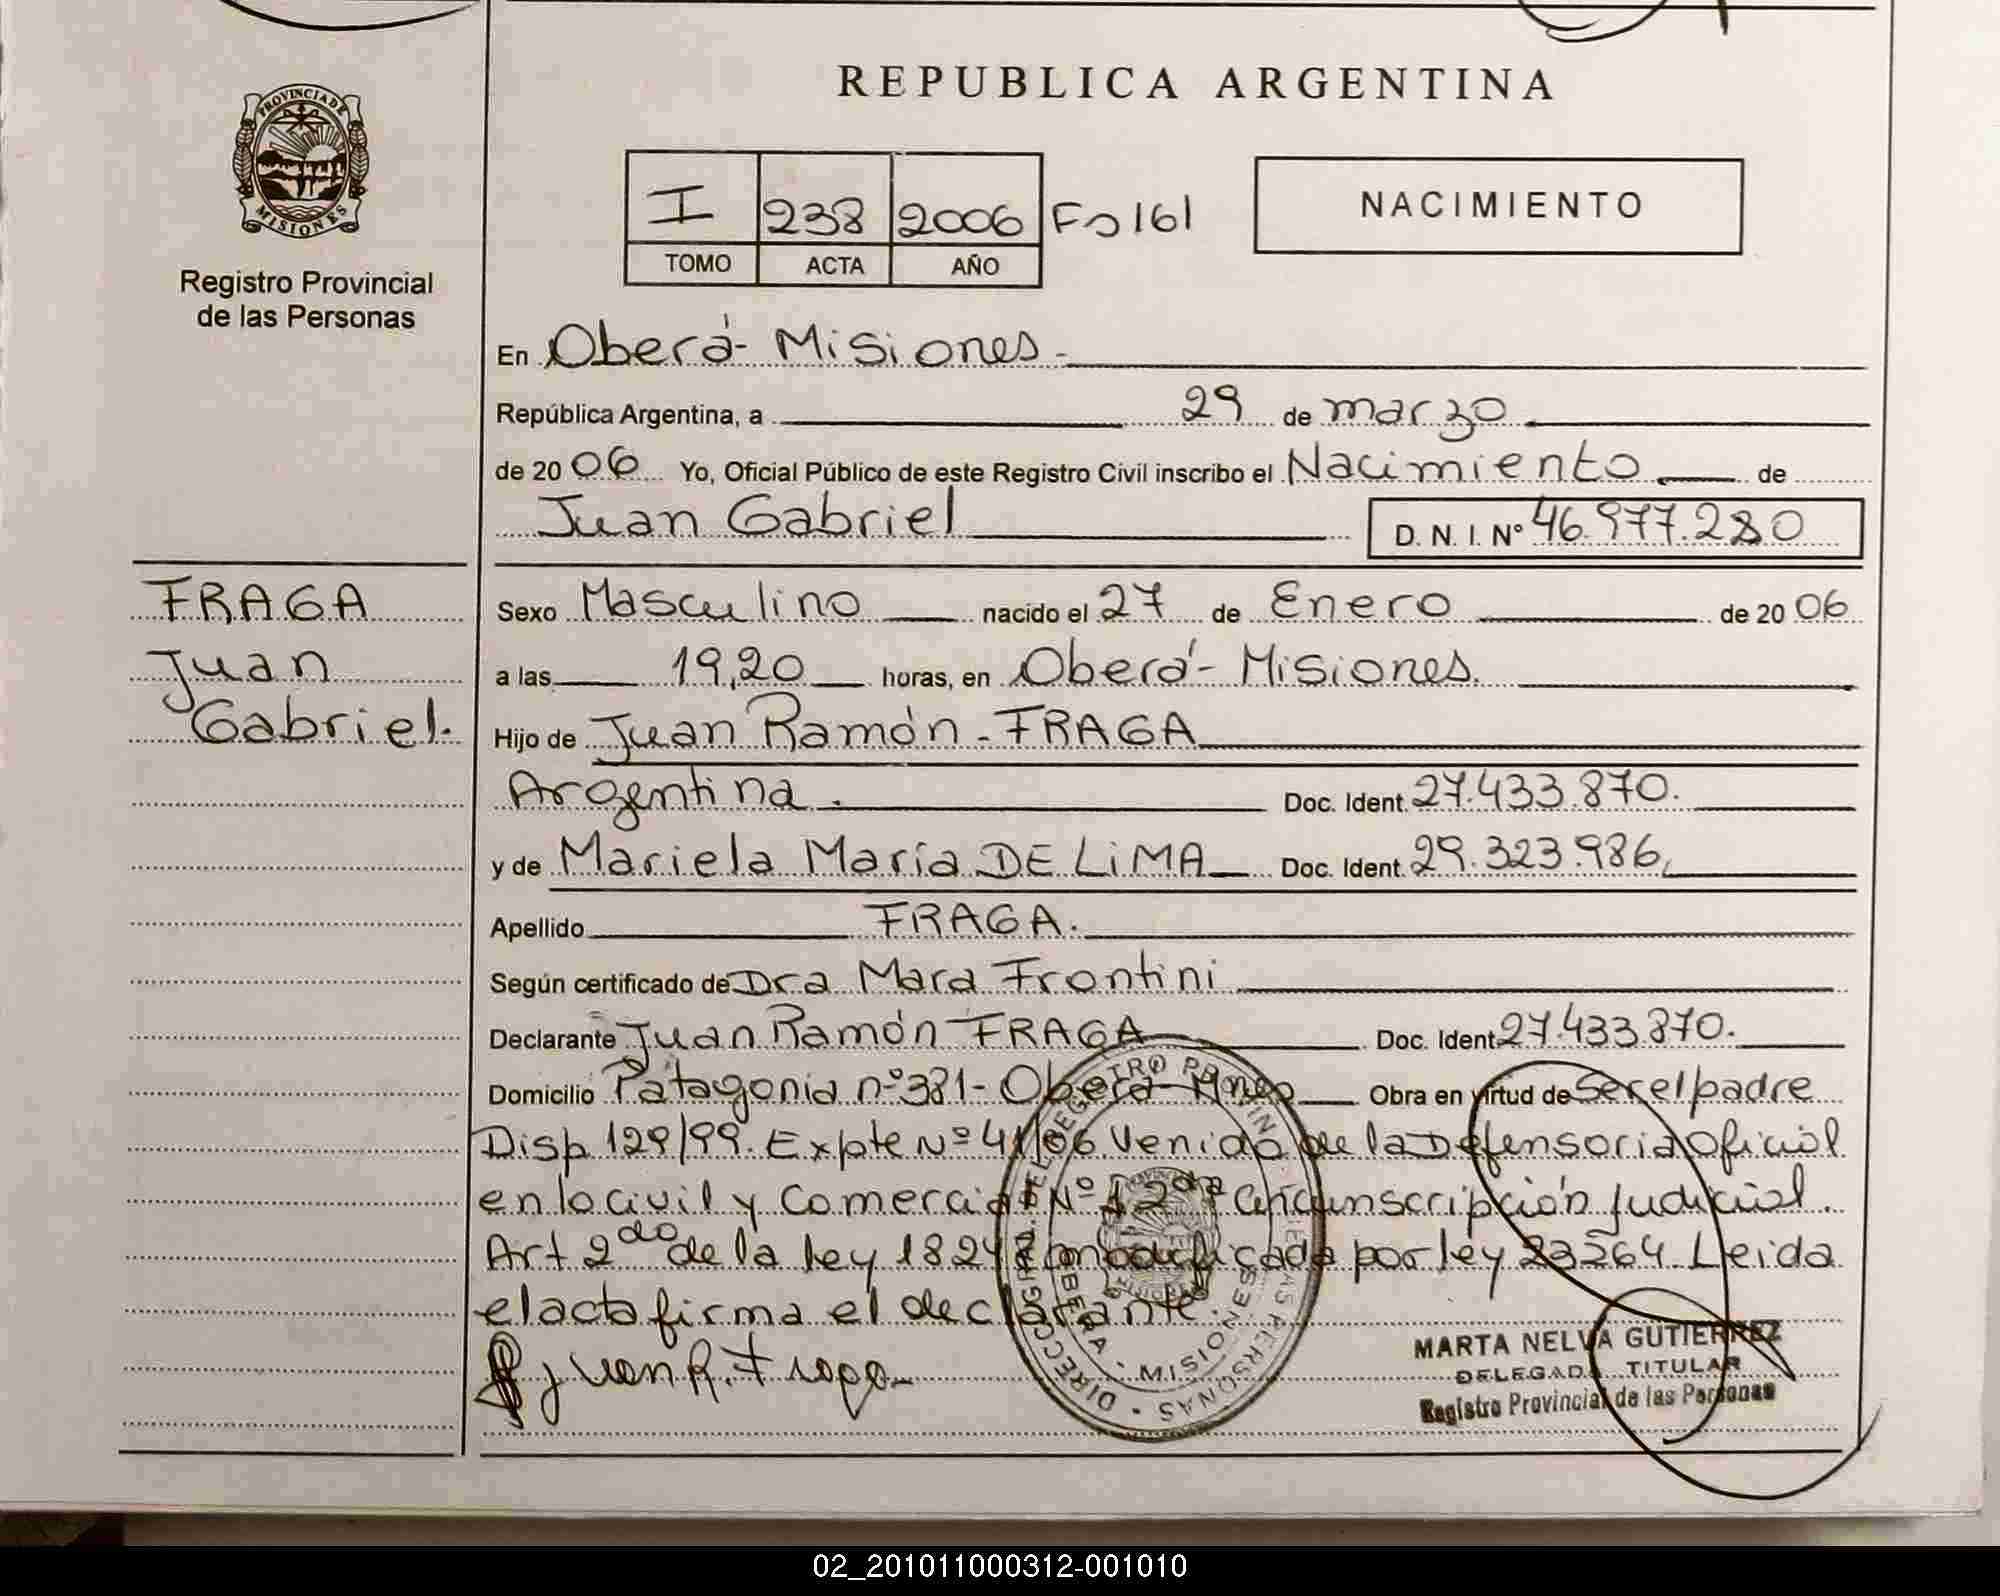 PROVINCIA DE
MISIONES
Registro Provincial
de las Personas
FRAGA
Juan
Gabriel.
REPUBLICA ARGENTINA
I 238 2006 Fº 161
TOMO ACTA AÑO
NACIMIENTO
En Oberá - Misiones -
República Argentina, a 29 de marzo
de 2006 Yo, Oficial Público de este Registro Civil inscribo el Nacimiento de
Juan Gabriel D. N. I. Nº 46.977.280
Sexo Masculino nacido el 27 de Enero de 2006
a las 19,20 horas, en Oberá - Misiones.
Hijo de Juan Ramón - FRAGA
Argentina. Doc. Ident. 27.433.870.
y de Mariela María DE LiMA Doc. Ident. 29.323.986,
Apellido FRAGA.
Según certificado de Dra Mara Frontini
Declarante Juan Ramón FRAGA Doc. Ident 27.433.870.
Domicilio Patagonia nº 381 - Oberá - Mnes Obra en virtud de ser el padre
Disp 129/99. Expte Nº 41/06 Venido de la Defensoria oficial
en lo civil y Comercial Nº 1 2da circunscripción judicial.
Art 2do de la ley 18247 modificada por ley 23264 Leida
el acta firma el declarante.
Juan R. Fraga
DIRECC. GRAL. DEL REGISTRO PROVINCIAL DE LAS PERSONAS
OBERA - MISIONES
MARTA NELVA GUTIERREZ
DELEGADA TITULAR
Registro Provincial de las Personas
02_201011000312-001010